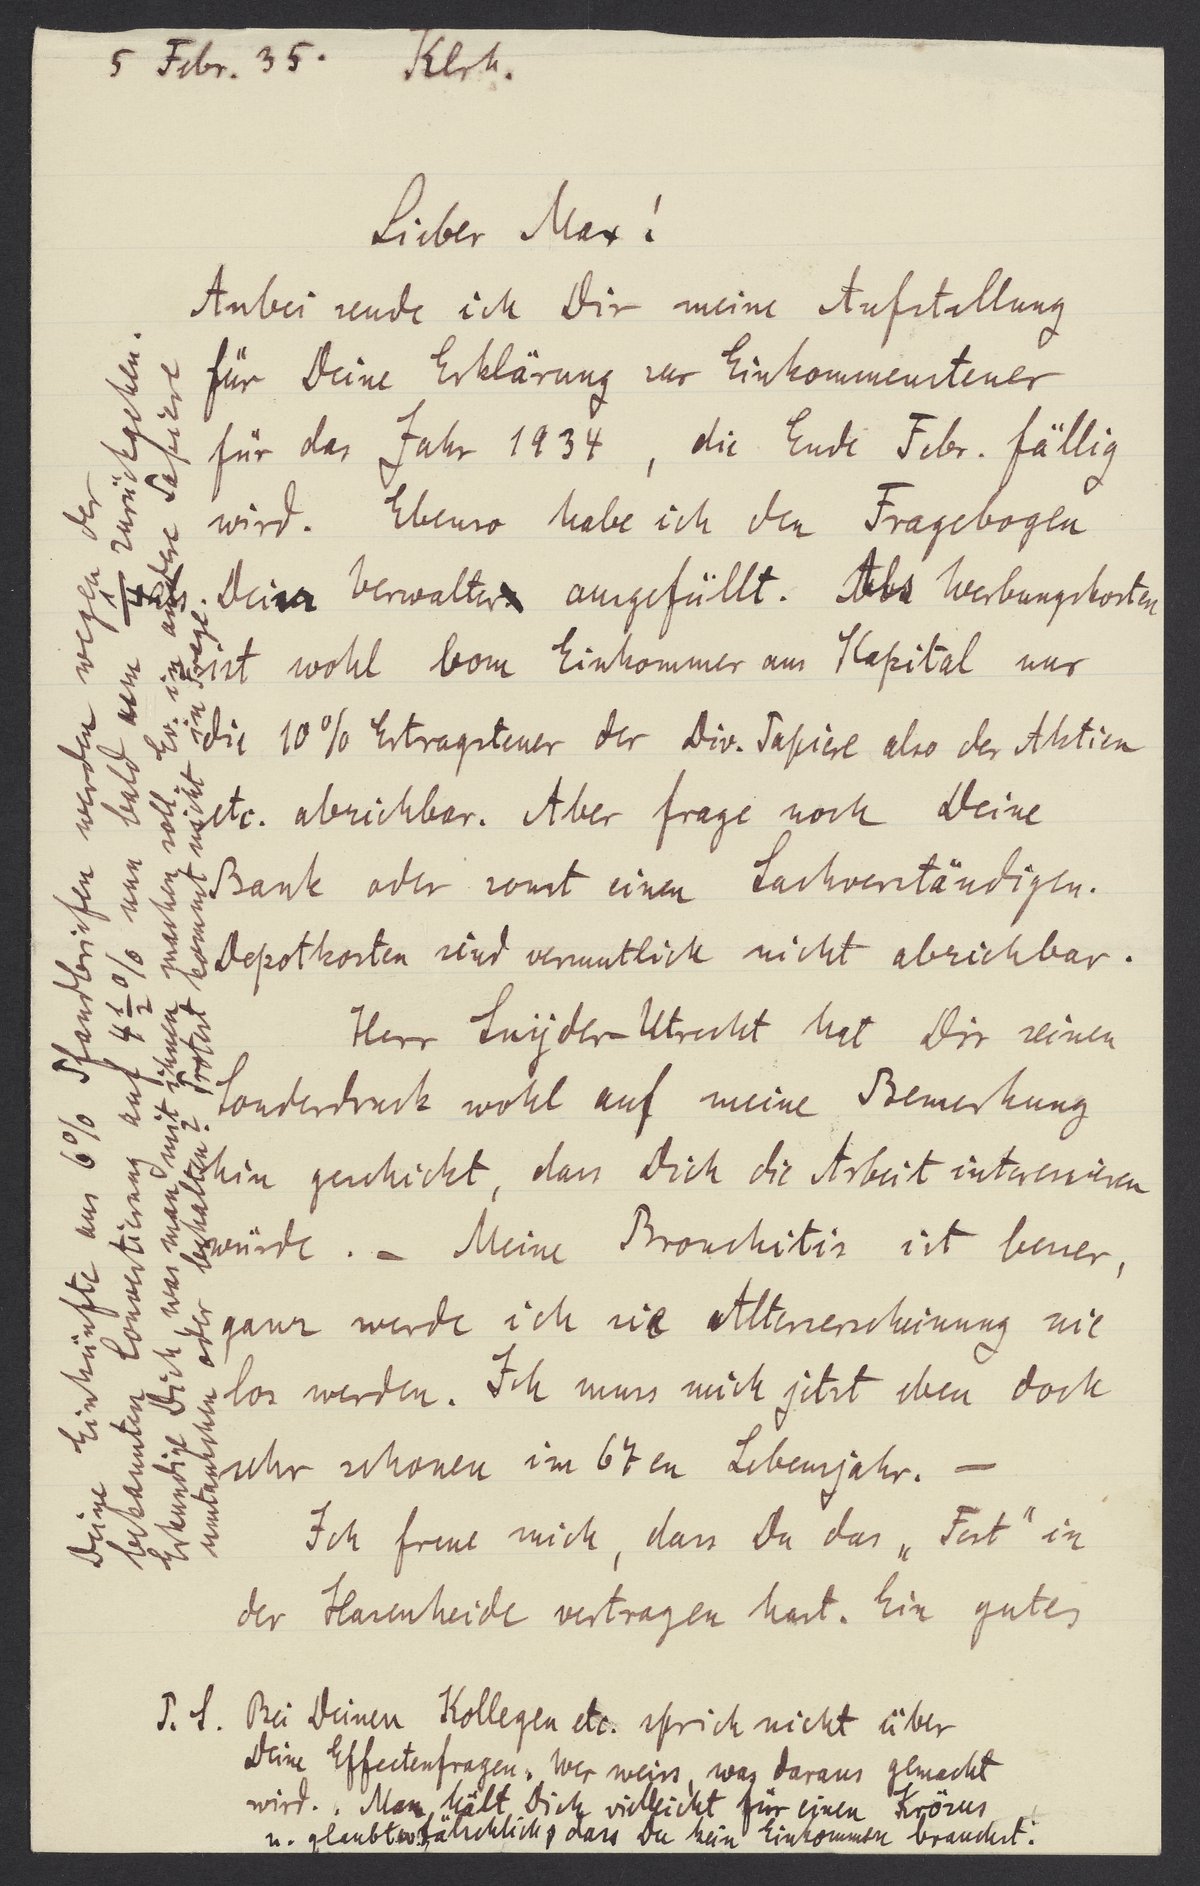 5 Febr. 35. Klrh.
Lieber Max!
Anbei sende ich Dir meine Aufstellung
für Deine Erklärung zur Einkommensteuer
für das Jahr 1934, die Ende Febr. fällig
wird. Ebenso habe ich den Fragebogen
Deines Verwalters ausgefüllt. Als Werbungskosten
ist wohl vom Einkommen aus Kapital nur
die 10% Ertragsteuer der Div. Papiere also der Aktien
etc. abziehbar. Aber frage noch Deine
Bank oder sonst einen Sachverständigen.
Depotkosten sind vermutlich nicht abziehbar.
Herr Snijder-Utrecht hat Dir seinen
Sonderdruck wohl auf meine Bemerkung
hin geschickt, dass Dich die Arbeit interessieren
würde. – Meine Bronchitis ist besser,
ganz werde ich sie Alterserscheinung nie
los werden. Ich muss mich jetzt eben doch
sehr schonen im 67en Lebensjahr. –
Ich freue mich, dass Du das „Fest" in
der Hasenheide vertragen hast. Ein gutes
P.S. Bei Deinen Kollegen etc. sprich nicht über
Deine Effectenfragen. Wer weiss, was daraus gemacht
wird. Man hält Dich vielleicht für einen Krösus
u. glaubt fälschlich, dass Du kein Einkommen brauchst!
Deine Einkünfte aus 6% Pfandbriefen werden wegen der
bekannten Convertierung auf 4½% nun bald um ¼ zurückgehen.
Erkundige Dich was man mit ihnen machen soll. Ev. in andere Papiere
umtauschen oder behalten? Protest kommt nicht in Frage.